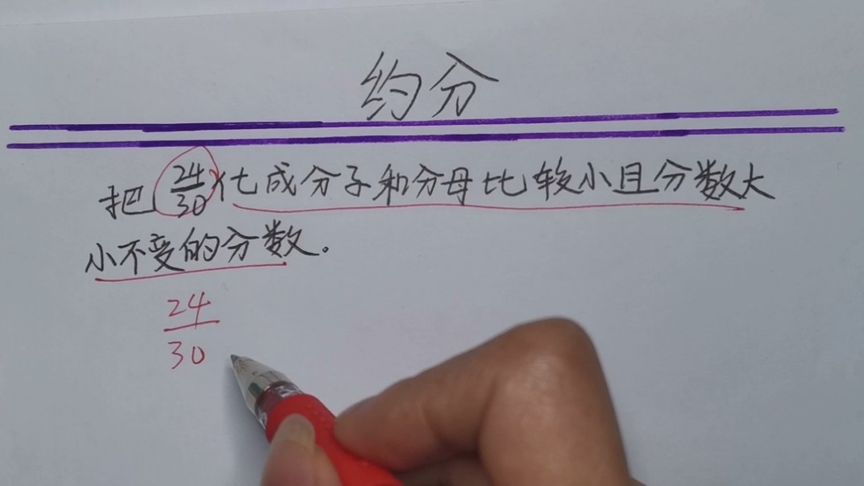 约分
把24/30化成分子和分母比较小且分数大
小不变的分数。
24
30